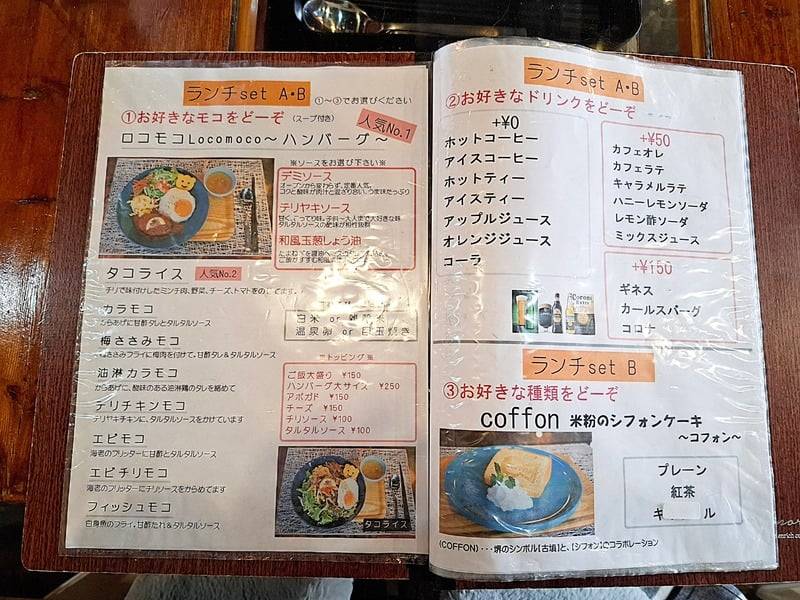 ランチset A・B
①～③でお選びください
①お好きなモコをどーぞ (スープ付き)
人気No.1
ロコモコLocomoco～ハンバーグ～
※ソースをお選び下さい※
デミソース
オープンから変わらず、定番人気。
コクと酸味が肉汁と混ざり合い、うま味たっぷり
テリヤキソース
甘く、こってり味。子供～大人まで大好きな味
タルタルソースの酸味が相性抜群
和風玉葱しょう油
タコライス 人気No.2
チリで味付けしたミンチ肉、野菜、チーズ、トマトをのせてます。
カラモコ
からあげに甘酢タレとタルタルソース
白米 or
温泉卵 or 目玉焼き
梅ささみモコ
梅ささみフライに梅肉を付けて、甘酢タレ&タルタルソース
油淋カラモコ
からあげに、酸味のある油淋鶏のタレを絡めて
テリチキンモコ
テリヤキチキンに、タルタルソースをかけています
エビモコ
海老のフリッターに甘酢とタルタルソース
エビチリモコ
海老のフリッターにチリソースをからめてます
フィッシュモコ
白身魚のフライ。甘酢たれ&タルタルソース
※トッピング※
ご飯大盛り ¥150
ハンバーグ大サイズ ¥250
アボガド ¥150
チーズ ¥150
チリソース ¥100
タルタルソース ¥100
タコライス
ランチset A・B
②お好きなドリンクをどーぞ
+¥0
ホットコーヒー
アイスコーヒー
ホットティー
アイスティー
アップルジュース
オレンジジュース
コーラ
+¥50
カフェオレ
カフェラテ
キャラメルラテ
ハニーレモンソーダ
レモン酢ソーダ
ミックスジュース
+¥150
ギネス
カールスバーグ
コロナ
ランチset B
③お好きな種類をどーぞ
coffon 米粉のシフォンケーキ
～コフォン～
プレーン
紅茶
(COFFON)・・・堺のシンボル【古墳】と、【シフォン】のコラボレーション